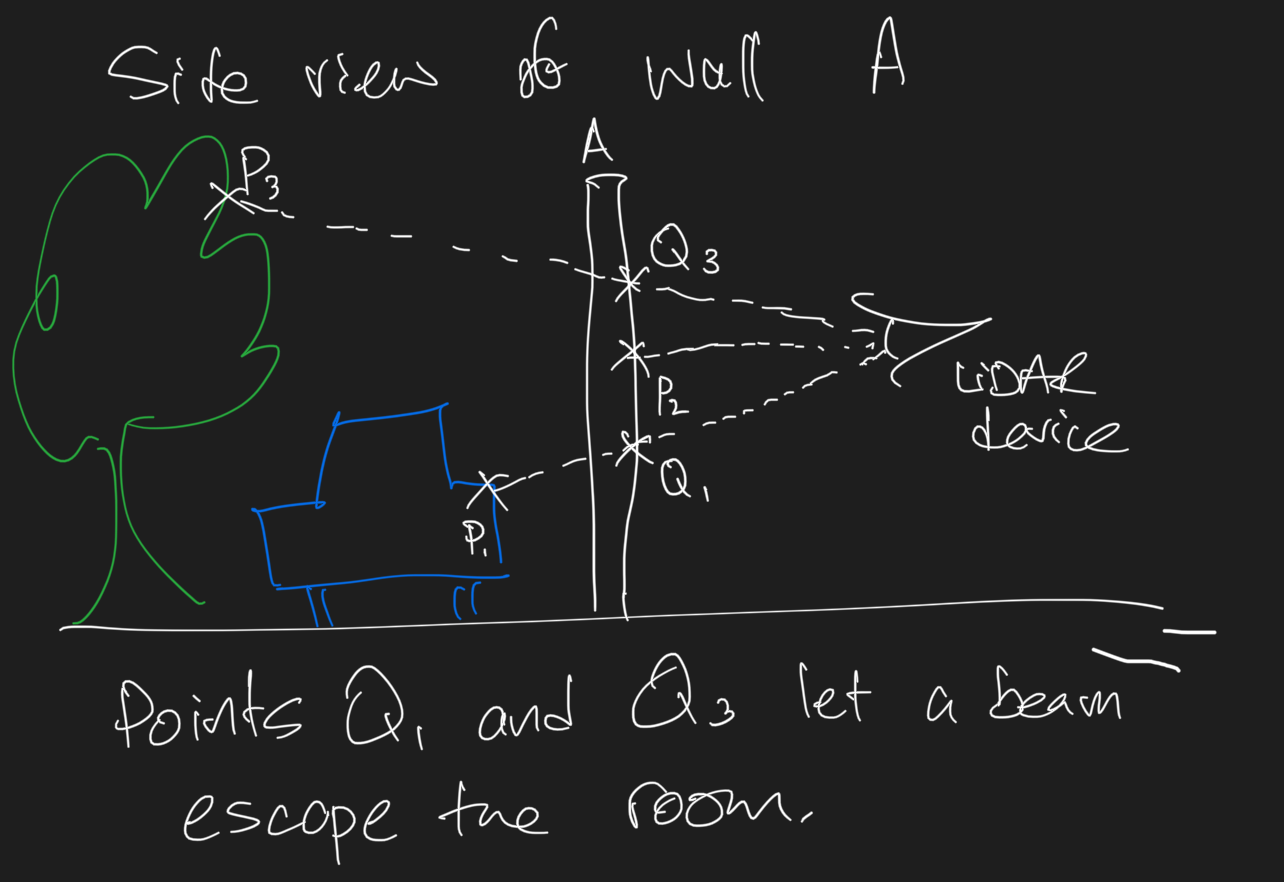 Side view of wall A
A
P3
Q3
P2
LiDAR
device
Q1
P1
Points Q1 and Q3 let a beam
escape the room.